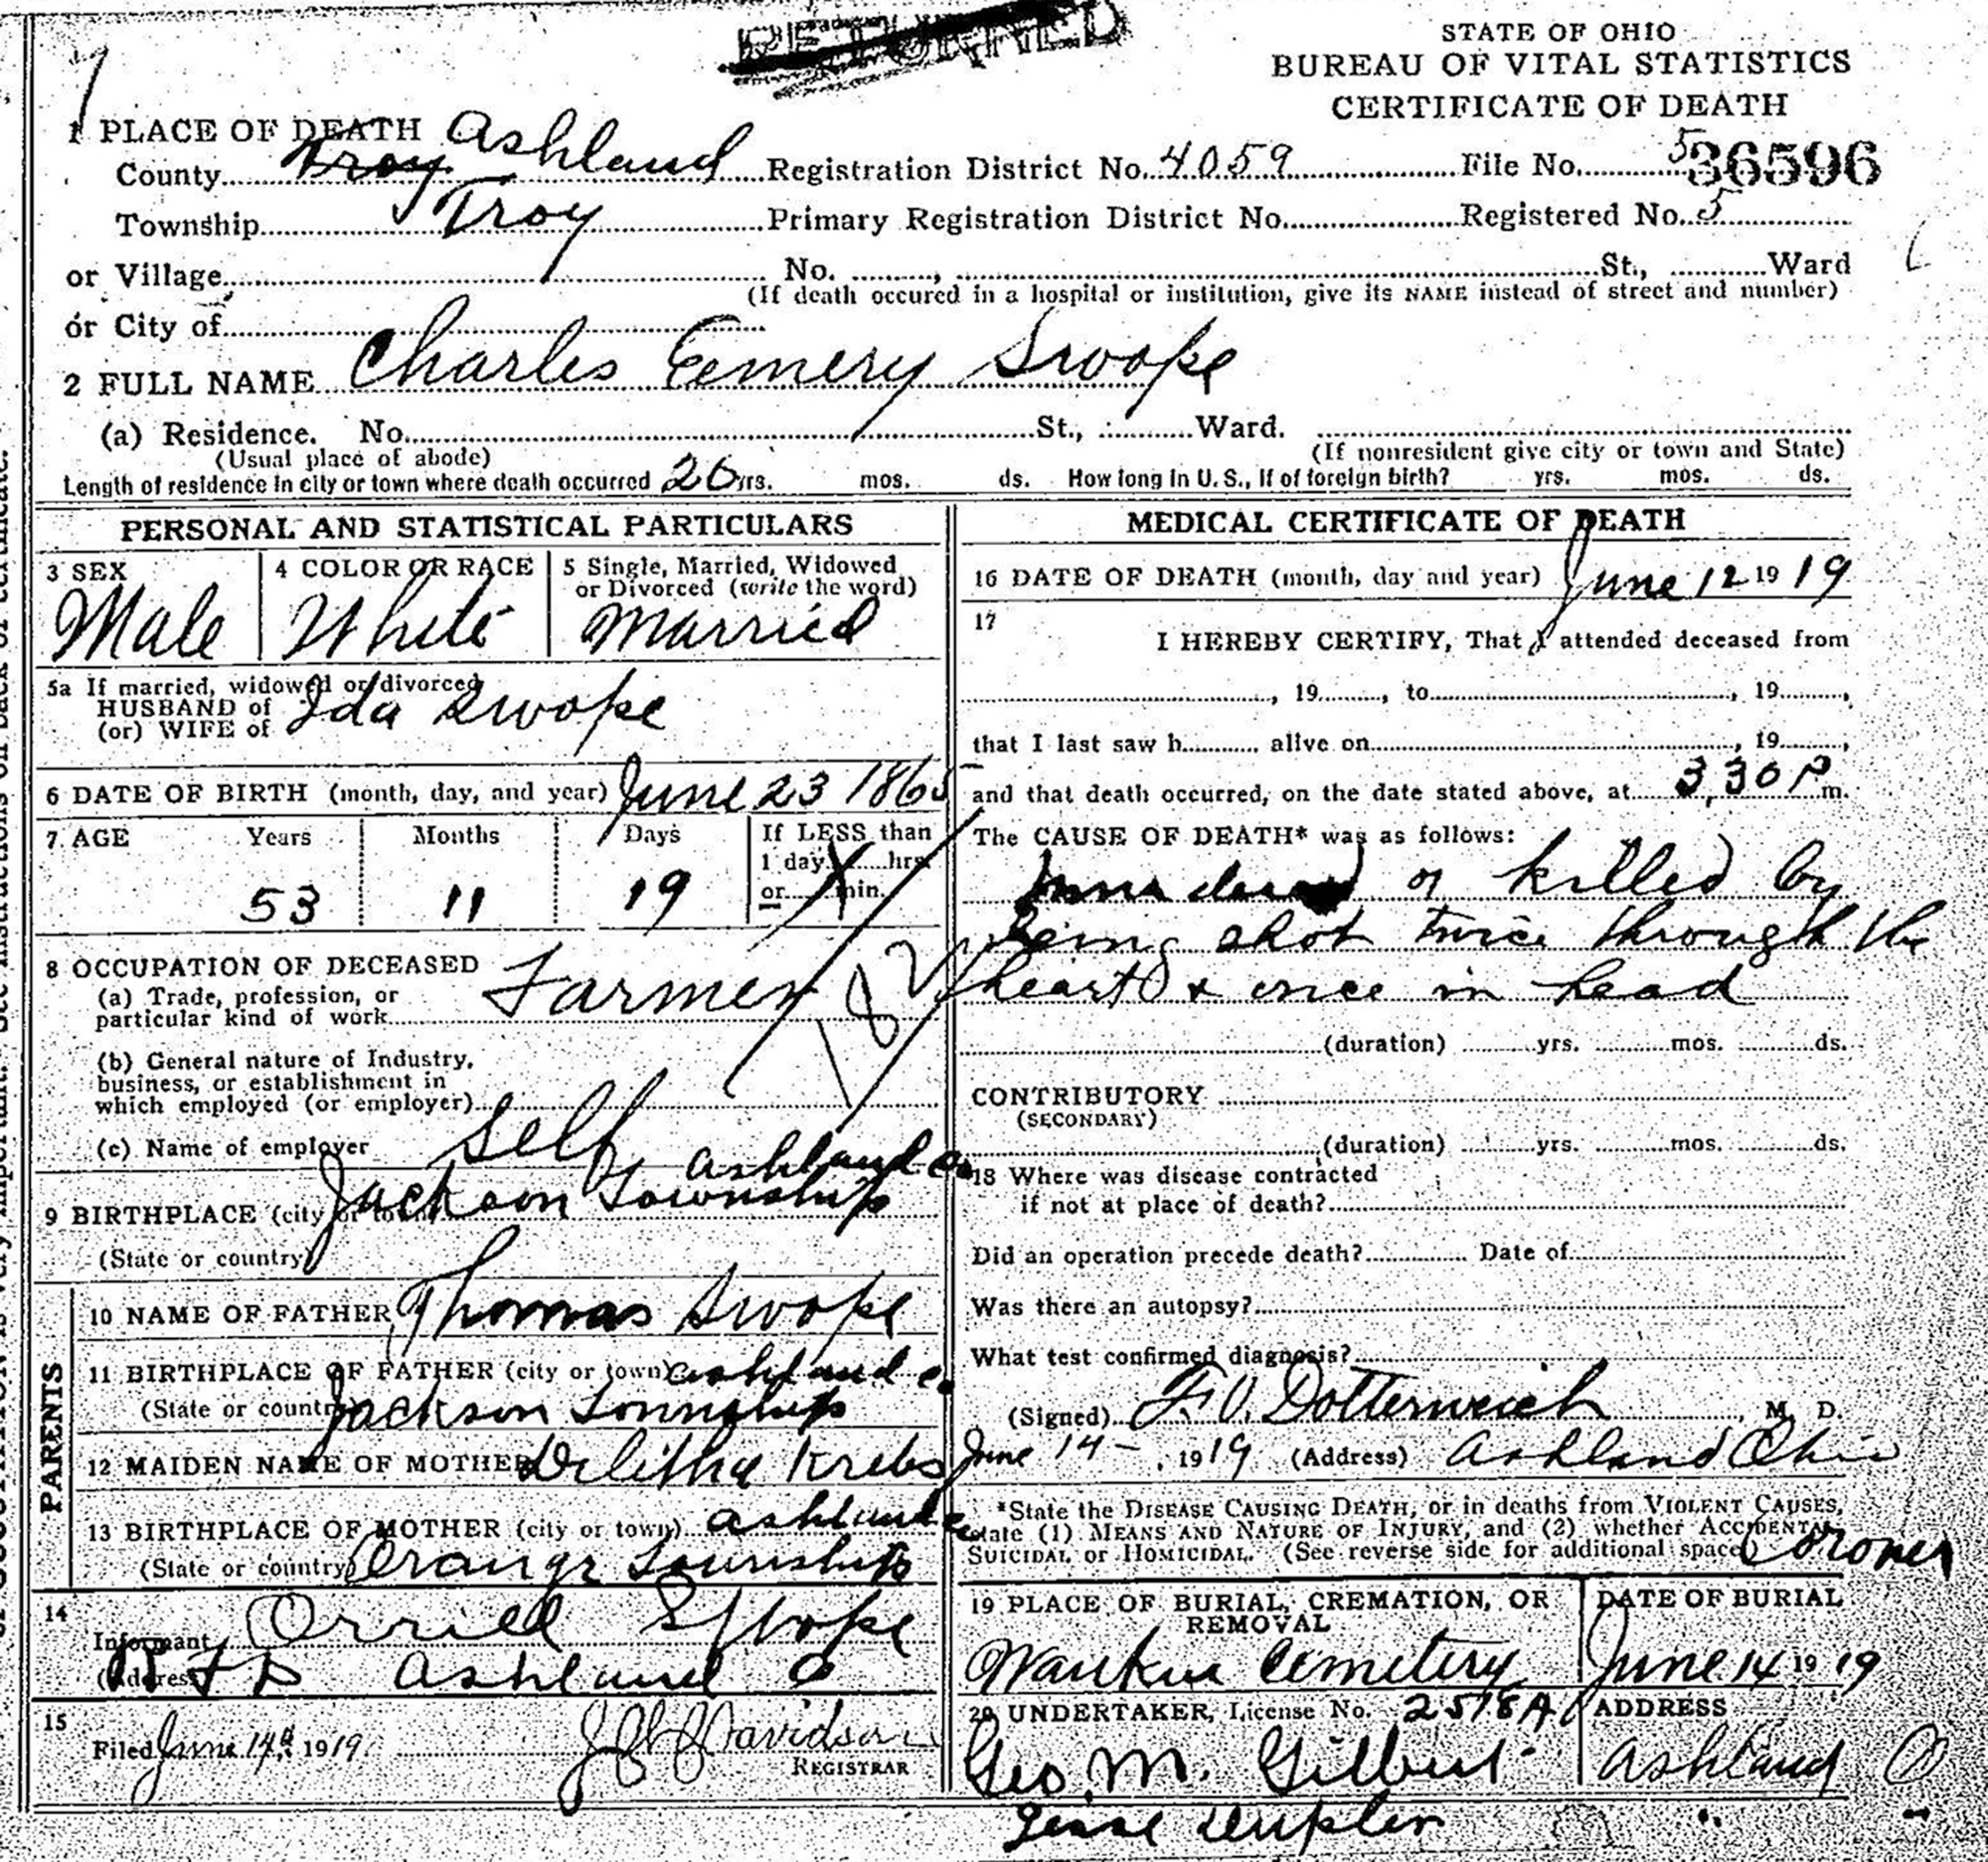 RETURNED
STATE OF OHIO
BUREAU OF VITAL STATISTICS
CERTIFICATE OF DEATH
1 PLACE OF DEATH
County Troy Ashland Registration District No. 4059 File No. 5 36596
Township Troy Primary Registration District No. Registered No. 5
or Village No. , St., Ward
(If death occured in a hospital or institution, give its NAME instead of street and number)
or City of
2 FULL NAME Charles Eemery Swope
(a) Residence. No. St., Ward.
(Usual place of abode) (If nonresident give city or town and State)
Length of residence in city or town where death occurred 26 yrs. mos. ds. How long in U. S., if of foreign birth? yrs. mos. ds.
PERSONAL AND STATISTICAL PARTICULARS
3 SEX 4 COLOR OR RACE 5 Single, Married, Widowed
or Divorced (write the word)
Male White Married
5a If married, widowed or divorced
HUSBAND of
(or) WIFE of Ida Swope
6 DATE OF BIRTH (month, day, and year) June 23 1865
7 AGE Years Months Days If LESS than
1 day, hrs.
or min.
53 11 19
8 OCCUPATION OF DECEASED
(a) Trade, profession, or
particular kind of work Farmer
182
(b) General nature of Industry,
business, or establishment in
which employed (or employer)
(c) Name of employer Self
9 BIRTHPLACE (city or town) Jackson Township Ashland Co.
(State or country)
PARENTS
10 NAME OF FATHER Thomas Swope
11 BIRTHPLACE OF FATHER (city or town) Ashland Co
(State or country) Jackson Township
12 MAIDEN NAME OF MOTHER Delitha Krebs
13 BIRTHPLACE OF MOTHER (city or town) Ashland Co
(State or country) Orange Township
14
Informant Orriel Swope
(Address) R F D Ashland O
15
Filed June 14th 1919 Davidson
REGISTRAR
MEDICAL CERTIFICATE OF DEATH
16 DATE OF DEATH (month, day and year) June 12 1919
17
I HEREBY CERTIFY, That I attended deceased from
, 19 , to , 19 ,
that I last saw h alive on , 19 ,
and that death occurred, on the date stated above, at 3,30 P m.
The CAUSE OF DEATH* was as follows:
or killed by
being shot twice through the
heart & once in head
(duration) yrs. mos. ds.
CONTRIBUTORY
(SECONDARY)
(duration) yrs. mos. ds.
18 Where was disease contracted
if not at place of death?
Did an operation precede death? Date of
Was there an autopsy?
What test confirmed diagnosis?
(Signed) F. V. Dotterweich, M. D.
June 14 - , 1919 (Address) Ashland Ohio
*State the DISEASE CAUSING DEATH, or in deaths from VIOLENT CAUSES,
state (1) MEANS AND NATURE OF INJURY, and (2) whether ACCIDENTAL,
SUICIDAL or HOMICIDAL. (See reverse side for additional space.) Coroner
19 PLACE OF BURIAL, CREMATION, OR
REMOVAL DATE OF BURIAL
Cemetery June 14 1919
20 UNDERTAKER, License No. 2518A ADDRESS
Geo. M. Gilbert Ashland O
Jesse " "